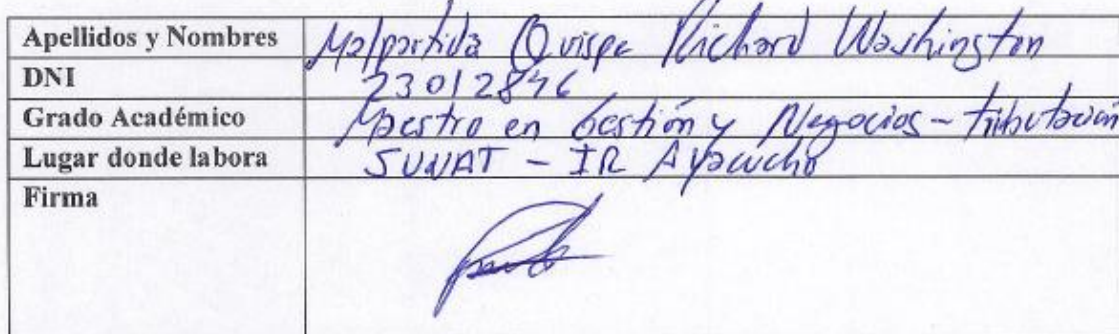 Apellidos y Nombres Malpartida Quispe Richard Washington
DNI 23012846
Grado Académico Maestro en Gestión y Negocios - Tributación
Lugar donde labora SUNAT - IR Ayacucho
Firma